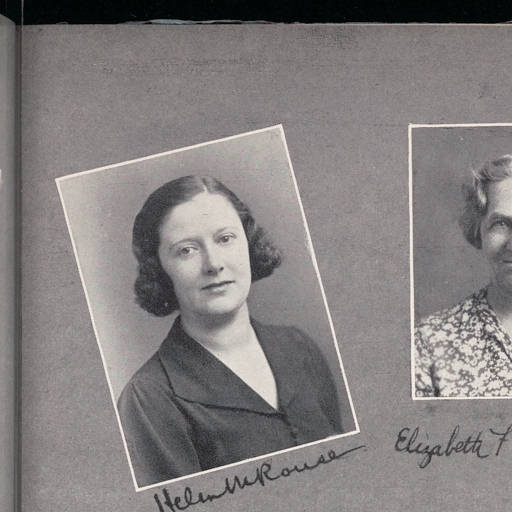 Helen M Rouse
Elizabeth F